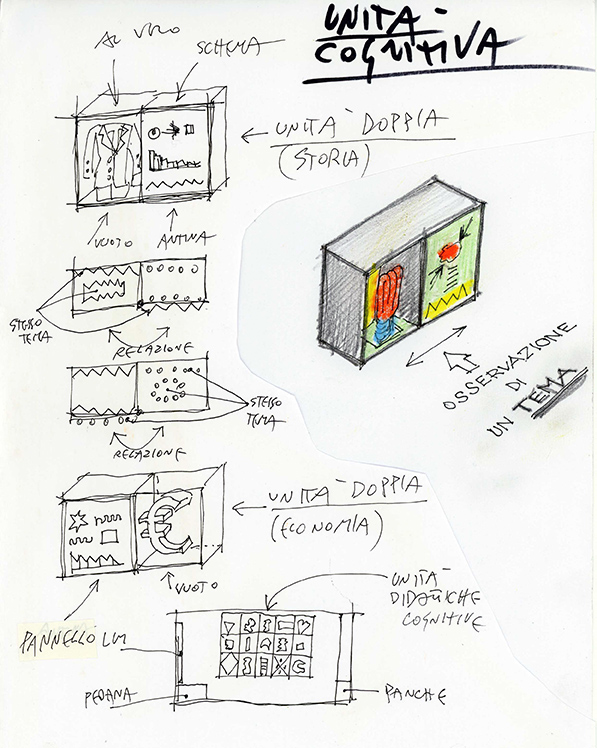 UNITA-
COGNITIVA
AL VIVO
SCHEMA
UNITA- DOPPIA
(STORIA)
VUOTO
ANTINA
STESSO
TEMA
RELAZIONE
STESSO
TEMA
RELAZIONE
OSSERVAZIONE
DI
UN TEMA
UNITA- DOPPIA
(ECONOMIA)
€
VUOTO
PANNELLO LUM
UNITA-
DIDATTICHE
COGNITIVE
PEDANA
PANCHE